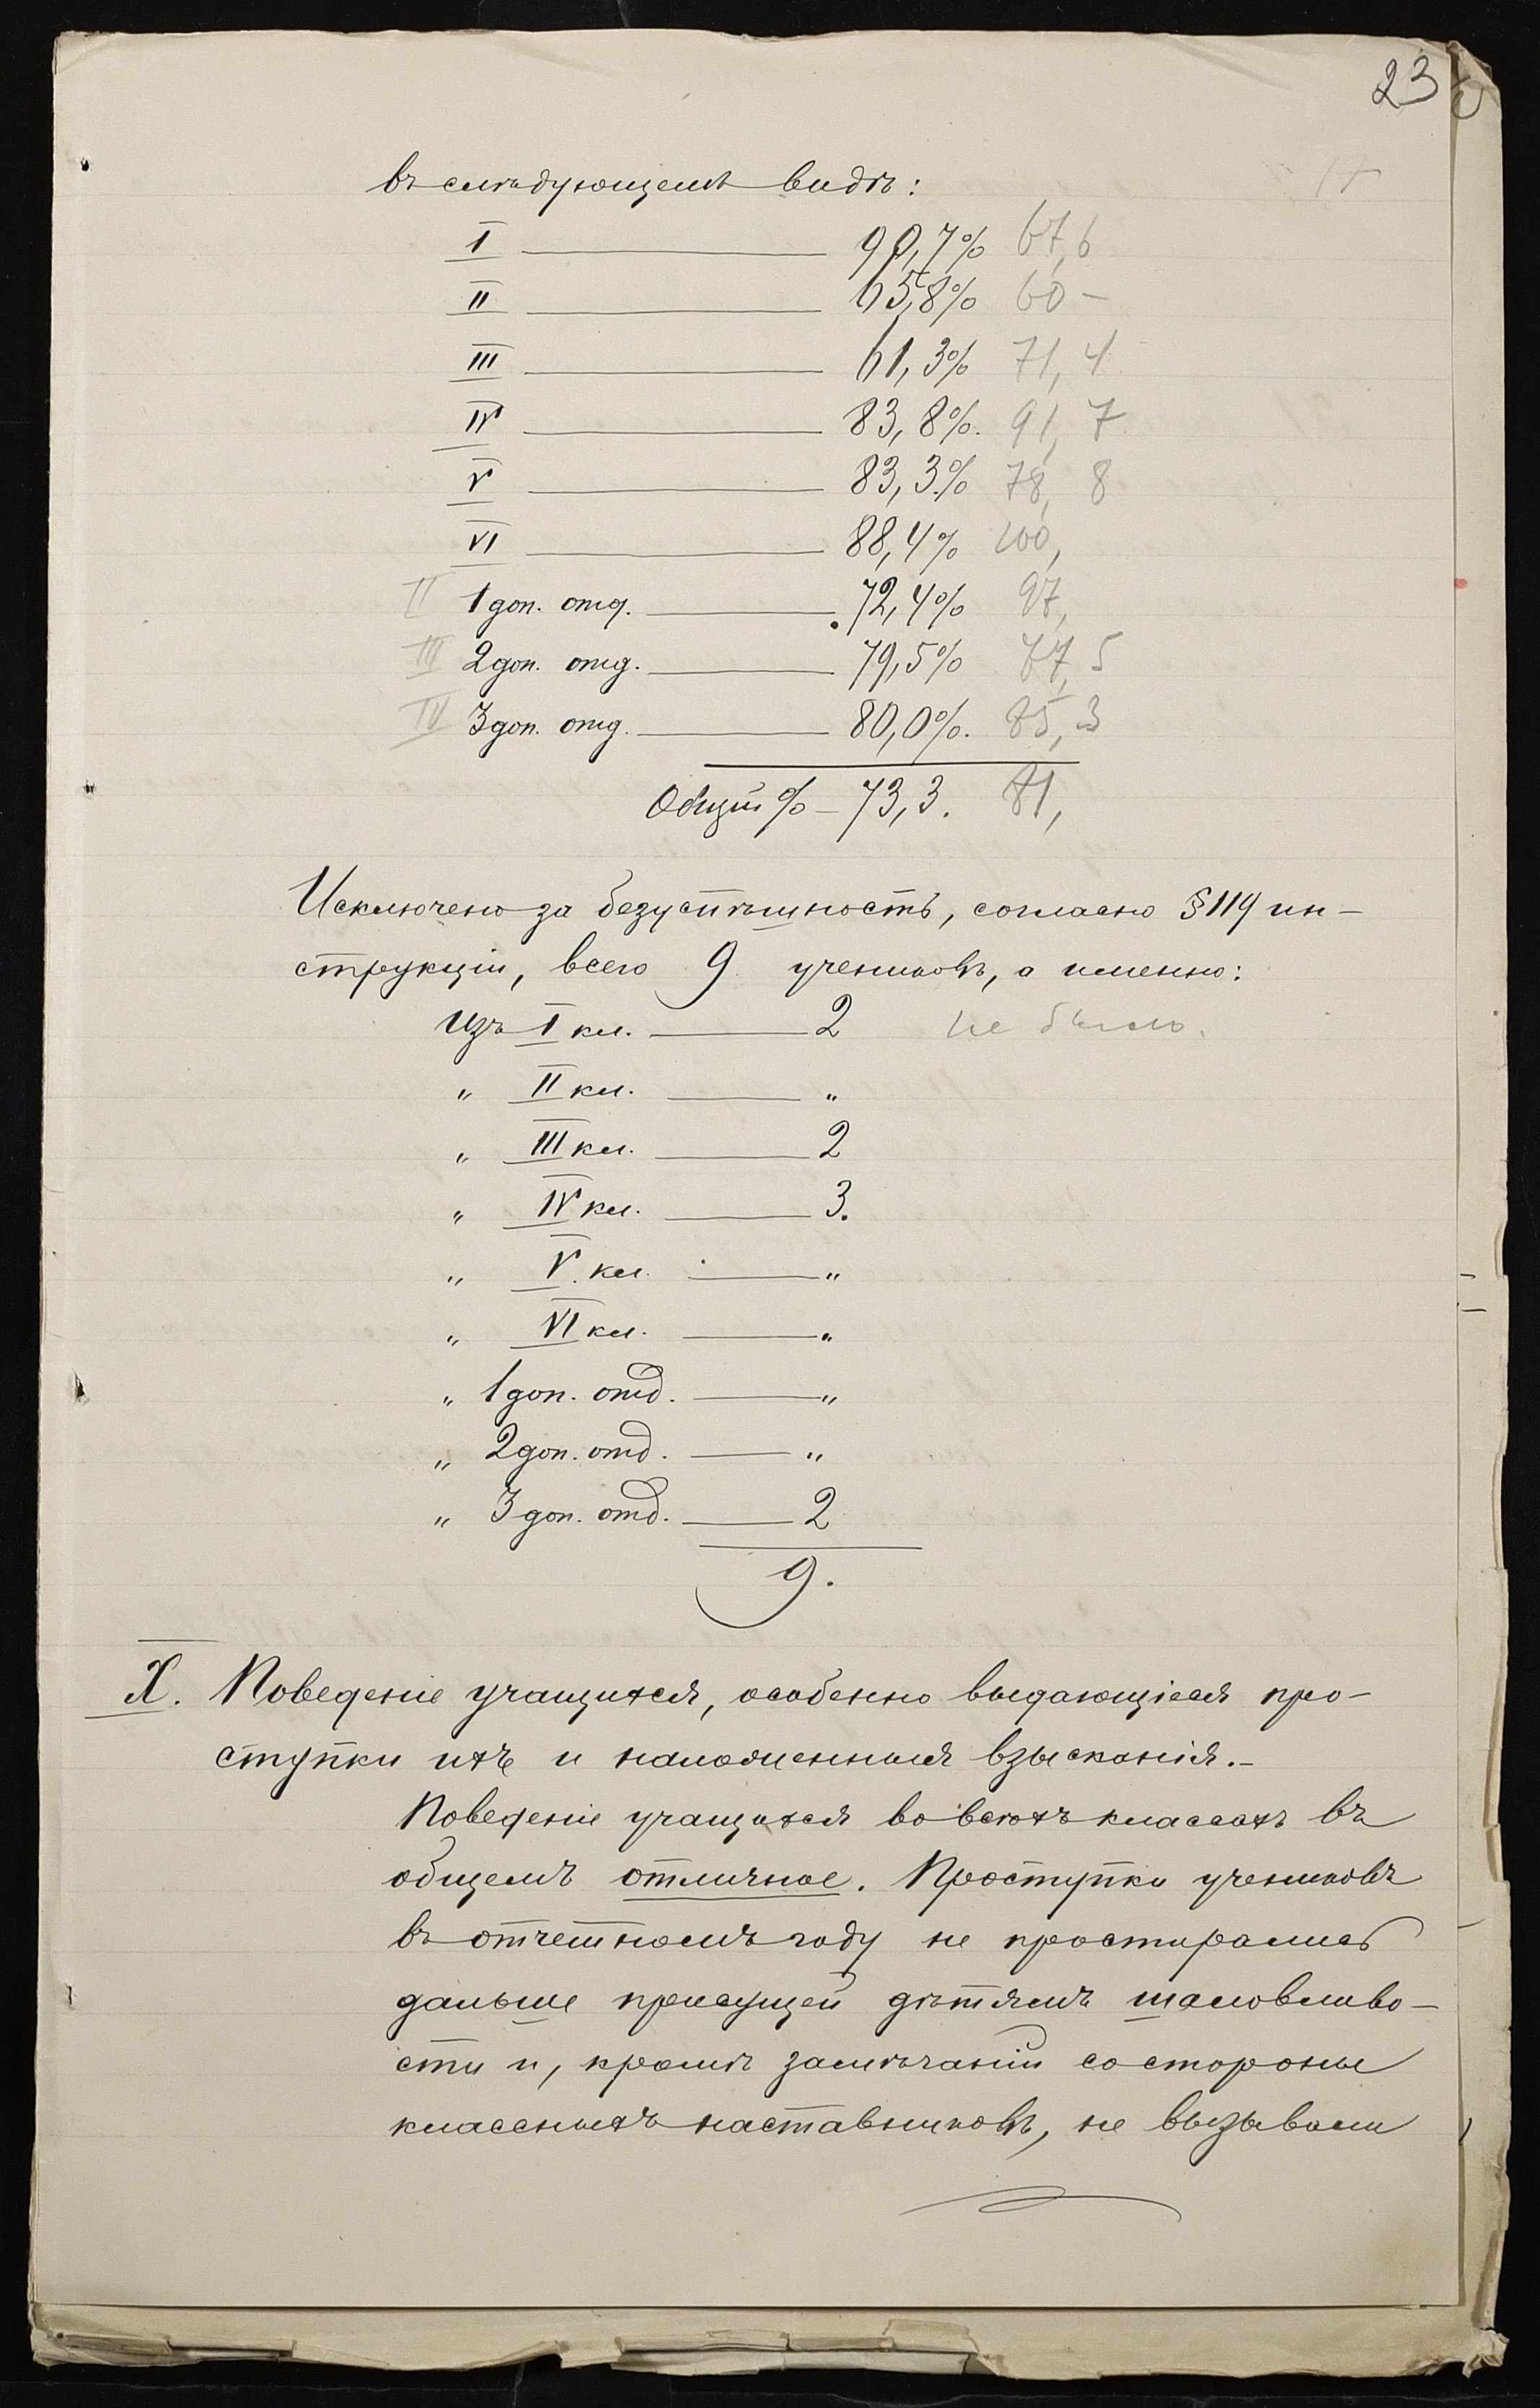 23
въ слѣдующемъ видѣ:
I — 90,7% 67,6
II — 65,8% 60 –
III — 61,3% 71,4
IV — 83,8%. 91,7
V — 83,3% 78,8
VI — 88,4% 100,
II 1 доп. отд. — 72,4% 97,
III 2 доп. отд. — 79,5% 77,5
IV 3 доп. отд. — 80,0%. 85,3
Общій % – 73,3. 81,
Исключено за безуспѣшность, согласно § 119 ин-
струкціи, всего 9 учениковъ, а именно:
Изъ I кл. — 2 не было.
„ II кл. — „
„ III кл. — 2
„ IV кл. — 3.
„ V. кл. — „
„ VI кл. — „
„ 1 доп. отд. — „
„ 2 доп. отд. — „
„ 3 доп. отд. — 2
9.
X. Поведеніе учащихся, особенно выдающіеся про-
ступки ихъ и наложенныя взысканія.–
Поведеніе учащихся во всѣхъ классахъ въ
общемъ отличное. Проступки учениковъ
въ отчетномъ году не простирались
дальше присущей дѣтямъ шаловливо-
сти и, кромѣ замѣчаній со стороны
классныхъ наставниковъ, не вызывали